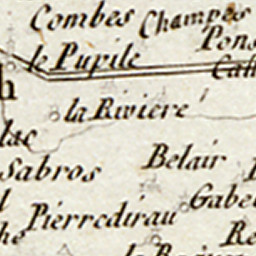 Combes Champés
le Pupile Pons
la Riviere
lac
Sabros Belair
Gabe
Pierredirau
he Re